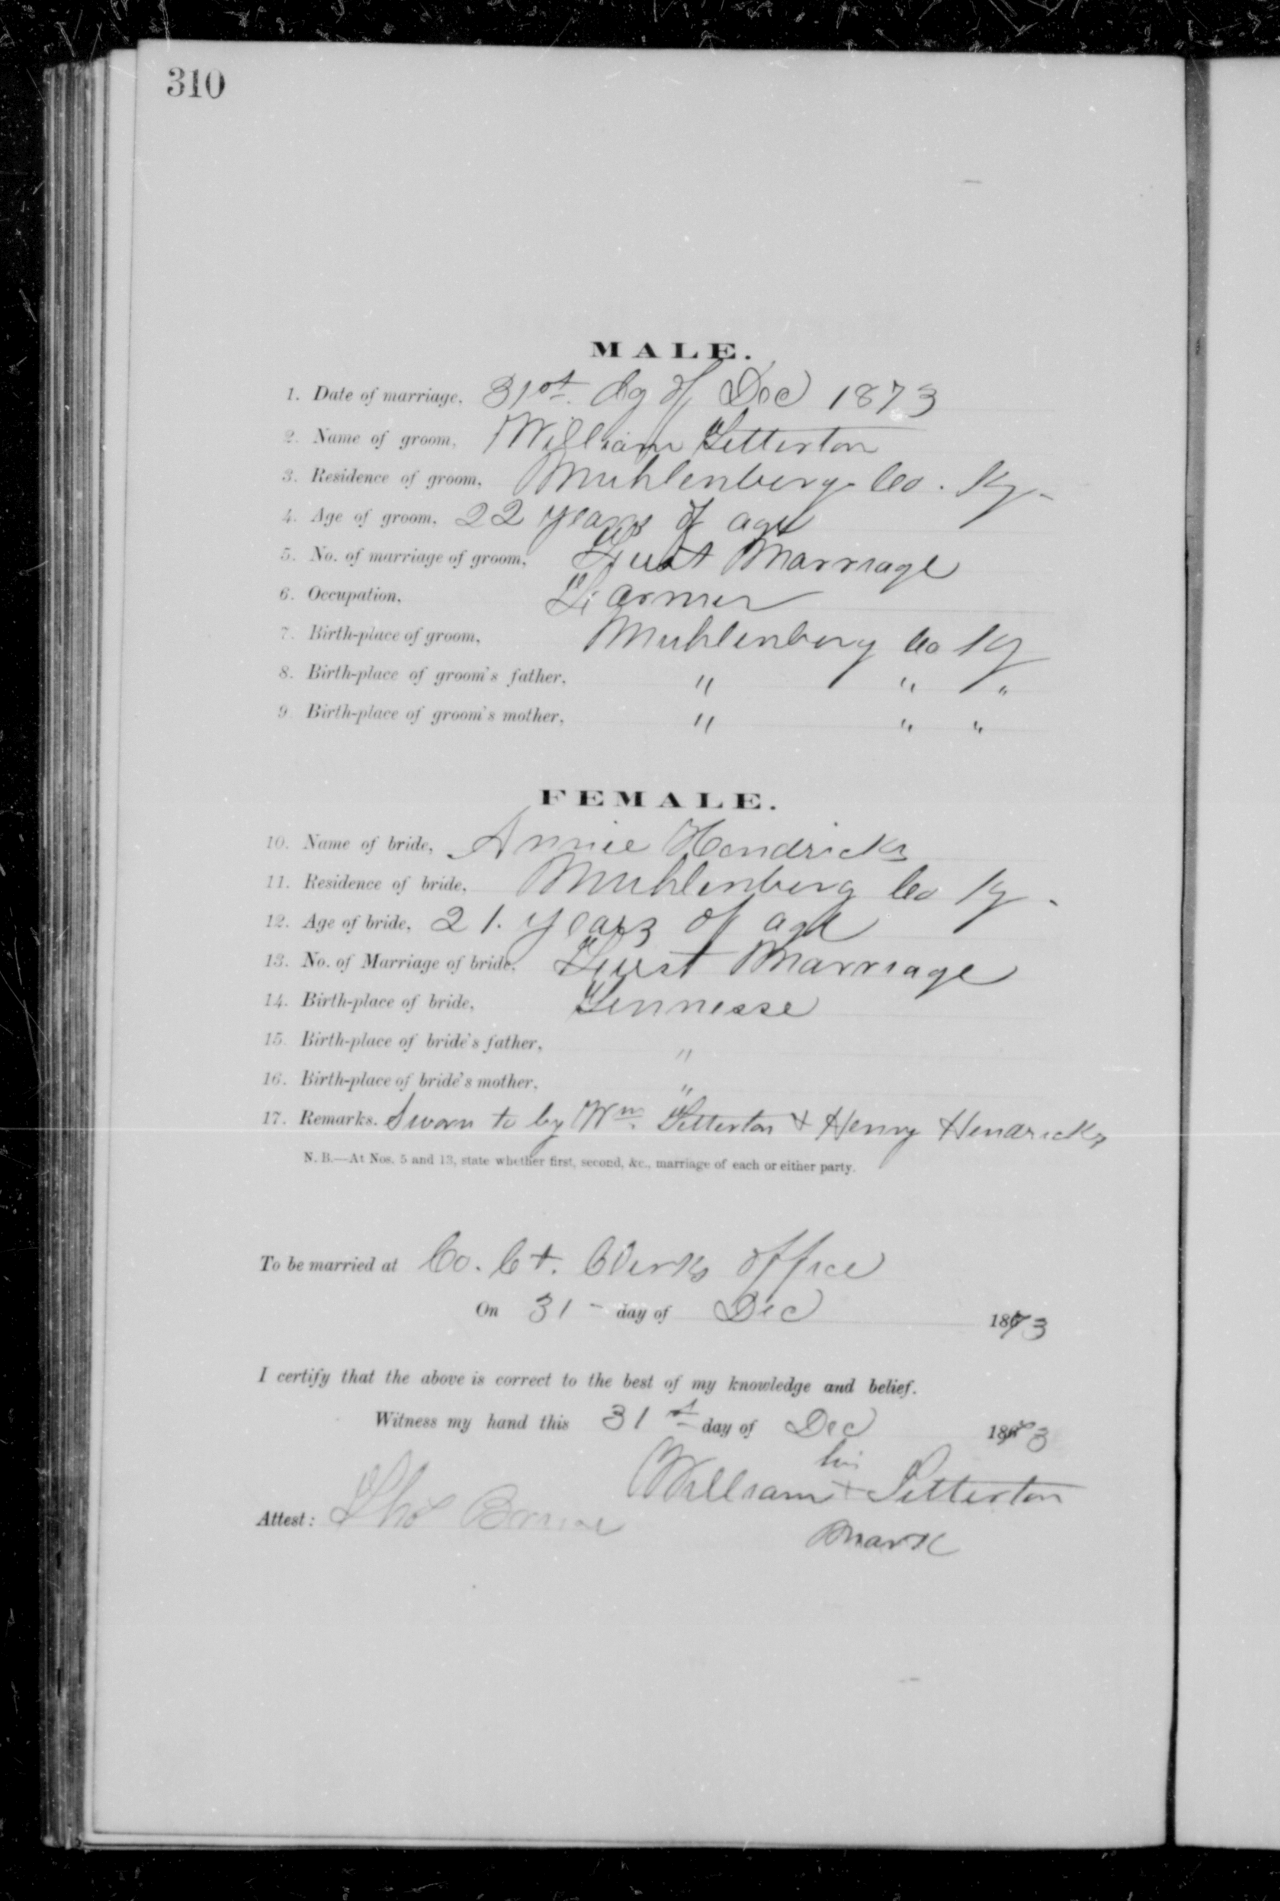 310
MALE.
1. Date of marriage, 31st dy of Dec 1873
2. Name of groom, William Titterton
3. Residence of groom, Muhlenberg Co. Ky-
4. Age of groom, 22 years of age
5. No. of marriage of groom, First Marriage
6. Occupation, Farmer
7. Birth-place of groom, Muhlenberg Co Ky
8. Birth-place of groom's father, " " "
9. Birth-place of groom's mother, " " "
FEMALE.
10. Name of bride, Annie Hendricks
11. Residence of bride, Muhlenberg Co Ky.
12. Age of bride, 21. years of age
13. No. of Marriage of bride, First Marriage
14. Birth-place of bride, Tennesse
15. Birth-place of bride's father, "
16. Birth-place of bride's mother, "
17. Remarks. Sworn to by Wm. Titterton & Henry Hendricks
N. B.—At Nos. 5 and 13, state whether first, second, &c., marriage of each or either party.
To be married at Co. Ct. Clerks office
On 31- day of Dec 1873
I certify that the above is correct to the best of my knowledge and belief.
Witness my hand this 31st day of Dec 1873
his
William + Titterton
Attest: Tho
mark